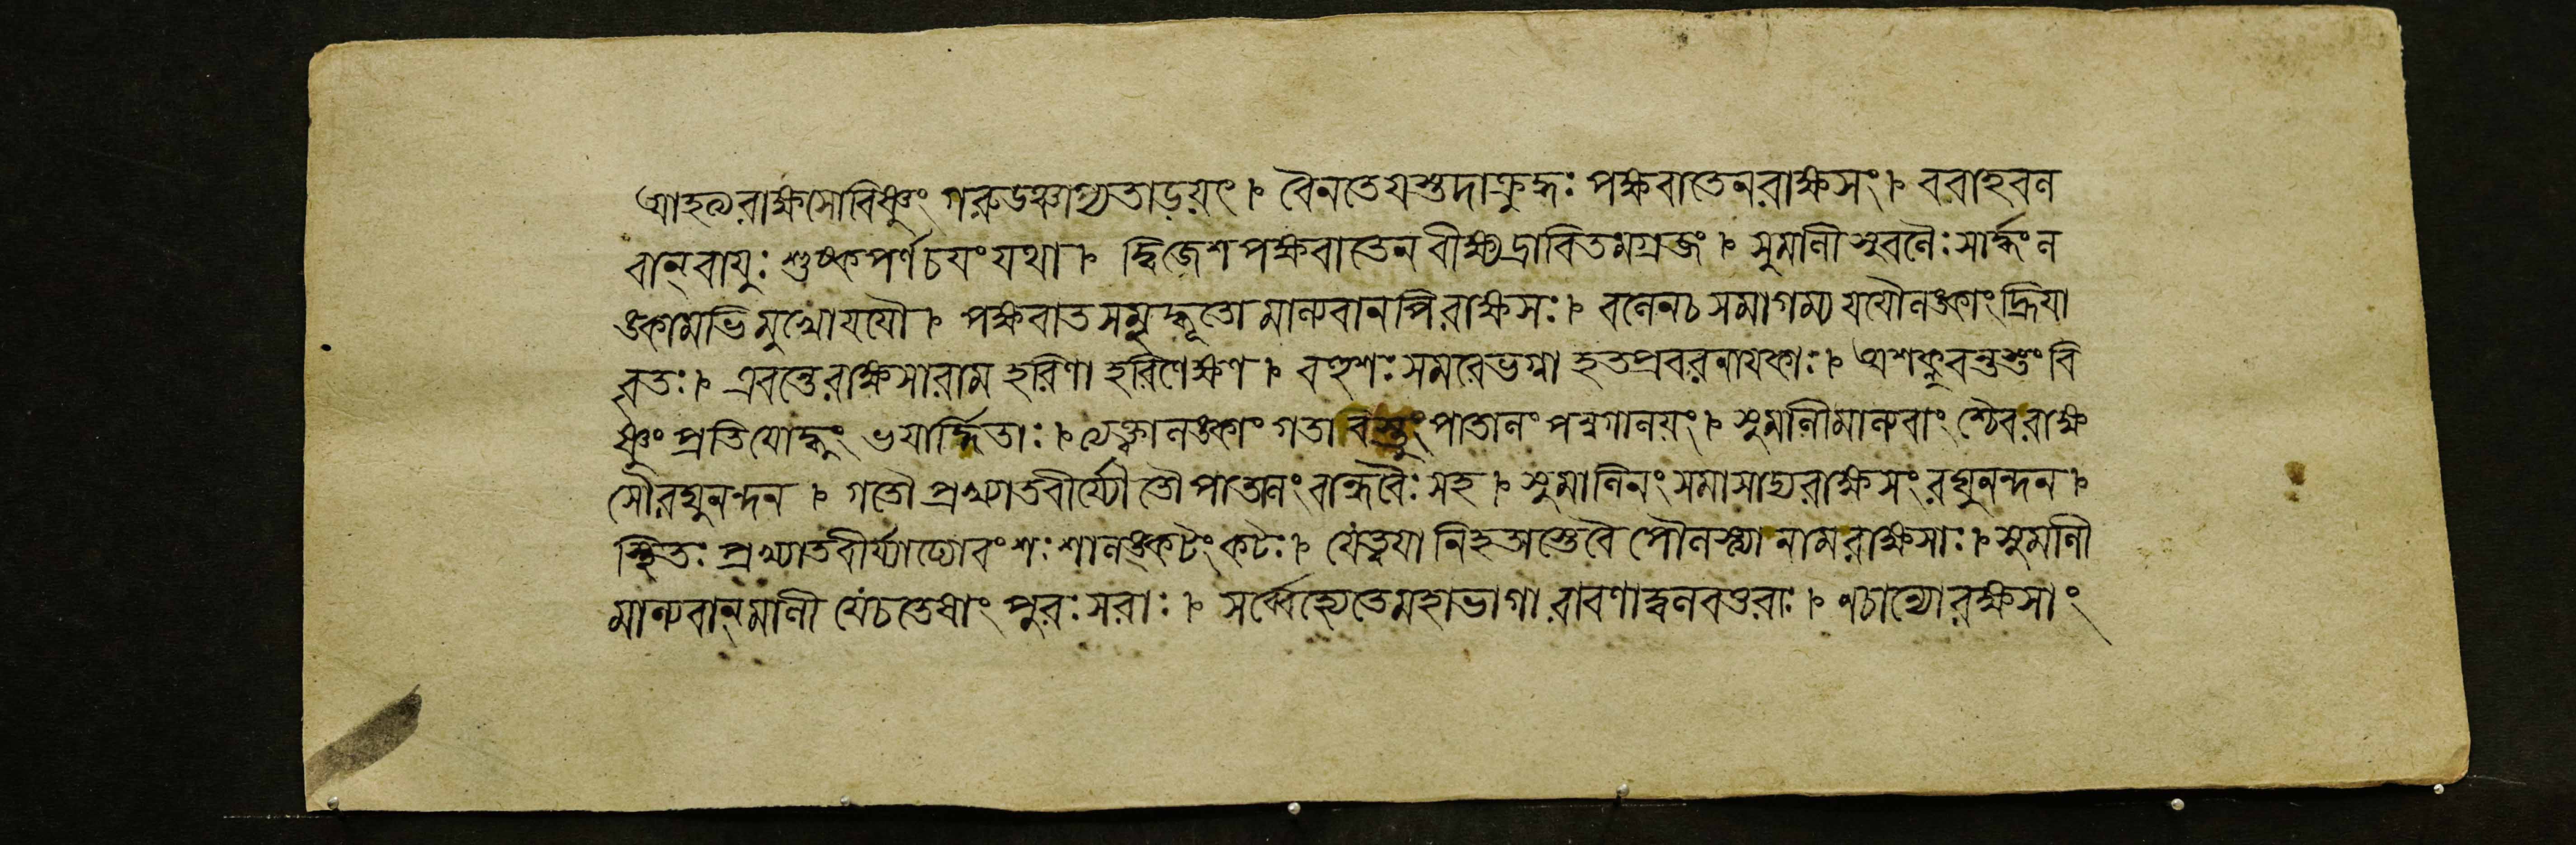 আহত্যরাক্ষসোবিষ্ণুং গরুডঞ্চাপ্যতাড়য়ৎ। বৈনতেয়স্তদাক্রুদ্ধঃ পক্ষবাতেনরাক্ষসং। ববাহবল
বান্বায়ুঃ শুষ্কপর্ণচয়ংযথা। দ্বিজেশপক্ষবাতেন বীক্ষ্যদ্রাবিতমগ্রজং। সুমালী স্ববলৈঃ সার্দ্ধং ল
ঙ্কামভিমুখোযযৌ। পক্ষবাতসমুদ্ধূতো মাল্যবানপি রাক্ষসঃ। বলেনচ সমাগম্য যযৌলঙ্কাং হ্রিয়া
বৃতঃ। এবন্তেরাক্ষসারাম হরিণা হরিণেক্ষণ। বহুশঃ সমরেভগ্না হতপ্রবরনায়কাঃ। অশক্নুবন্তস্তং বি
ষ্ণুং প্রতিযোদ্ধুং ভয়ার্দ্দিতাঃ। ত্যক্ত্বালঙ্কাং গতাবস্তুং পাতালং পন্নগালয়ং। সুমালীমাল্যবাংশ্চৈবরাক্ষ
সৌরঘুনন্দন। গতৌ প্রখ্যাতবীর্য্যৌতৌ পাতালং বান্ধবৈঃ সহ। সুমালিনং সমাসাদ্যরাক্ষসং রঘুনন্দন।
স্থিতঃ প্রখ্যাতবীর্য্যাঢ্যোবংশঃ শালঙ্কটংকটঃ। যেত্বয়া নিহতাস্তেবৈ পৌলস্ত্যা নাম রাক্ষসাঃ। সুমালী
মাল্যবান্মালী যেচতেষাং পুরঃসরাঃ। সর্ব্বেহ্যেতেমহাভাগা রাবণাদ্বলবত্তরাঃ। নচান্যোরক্ষসাং